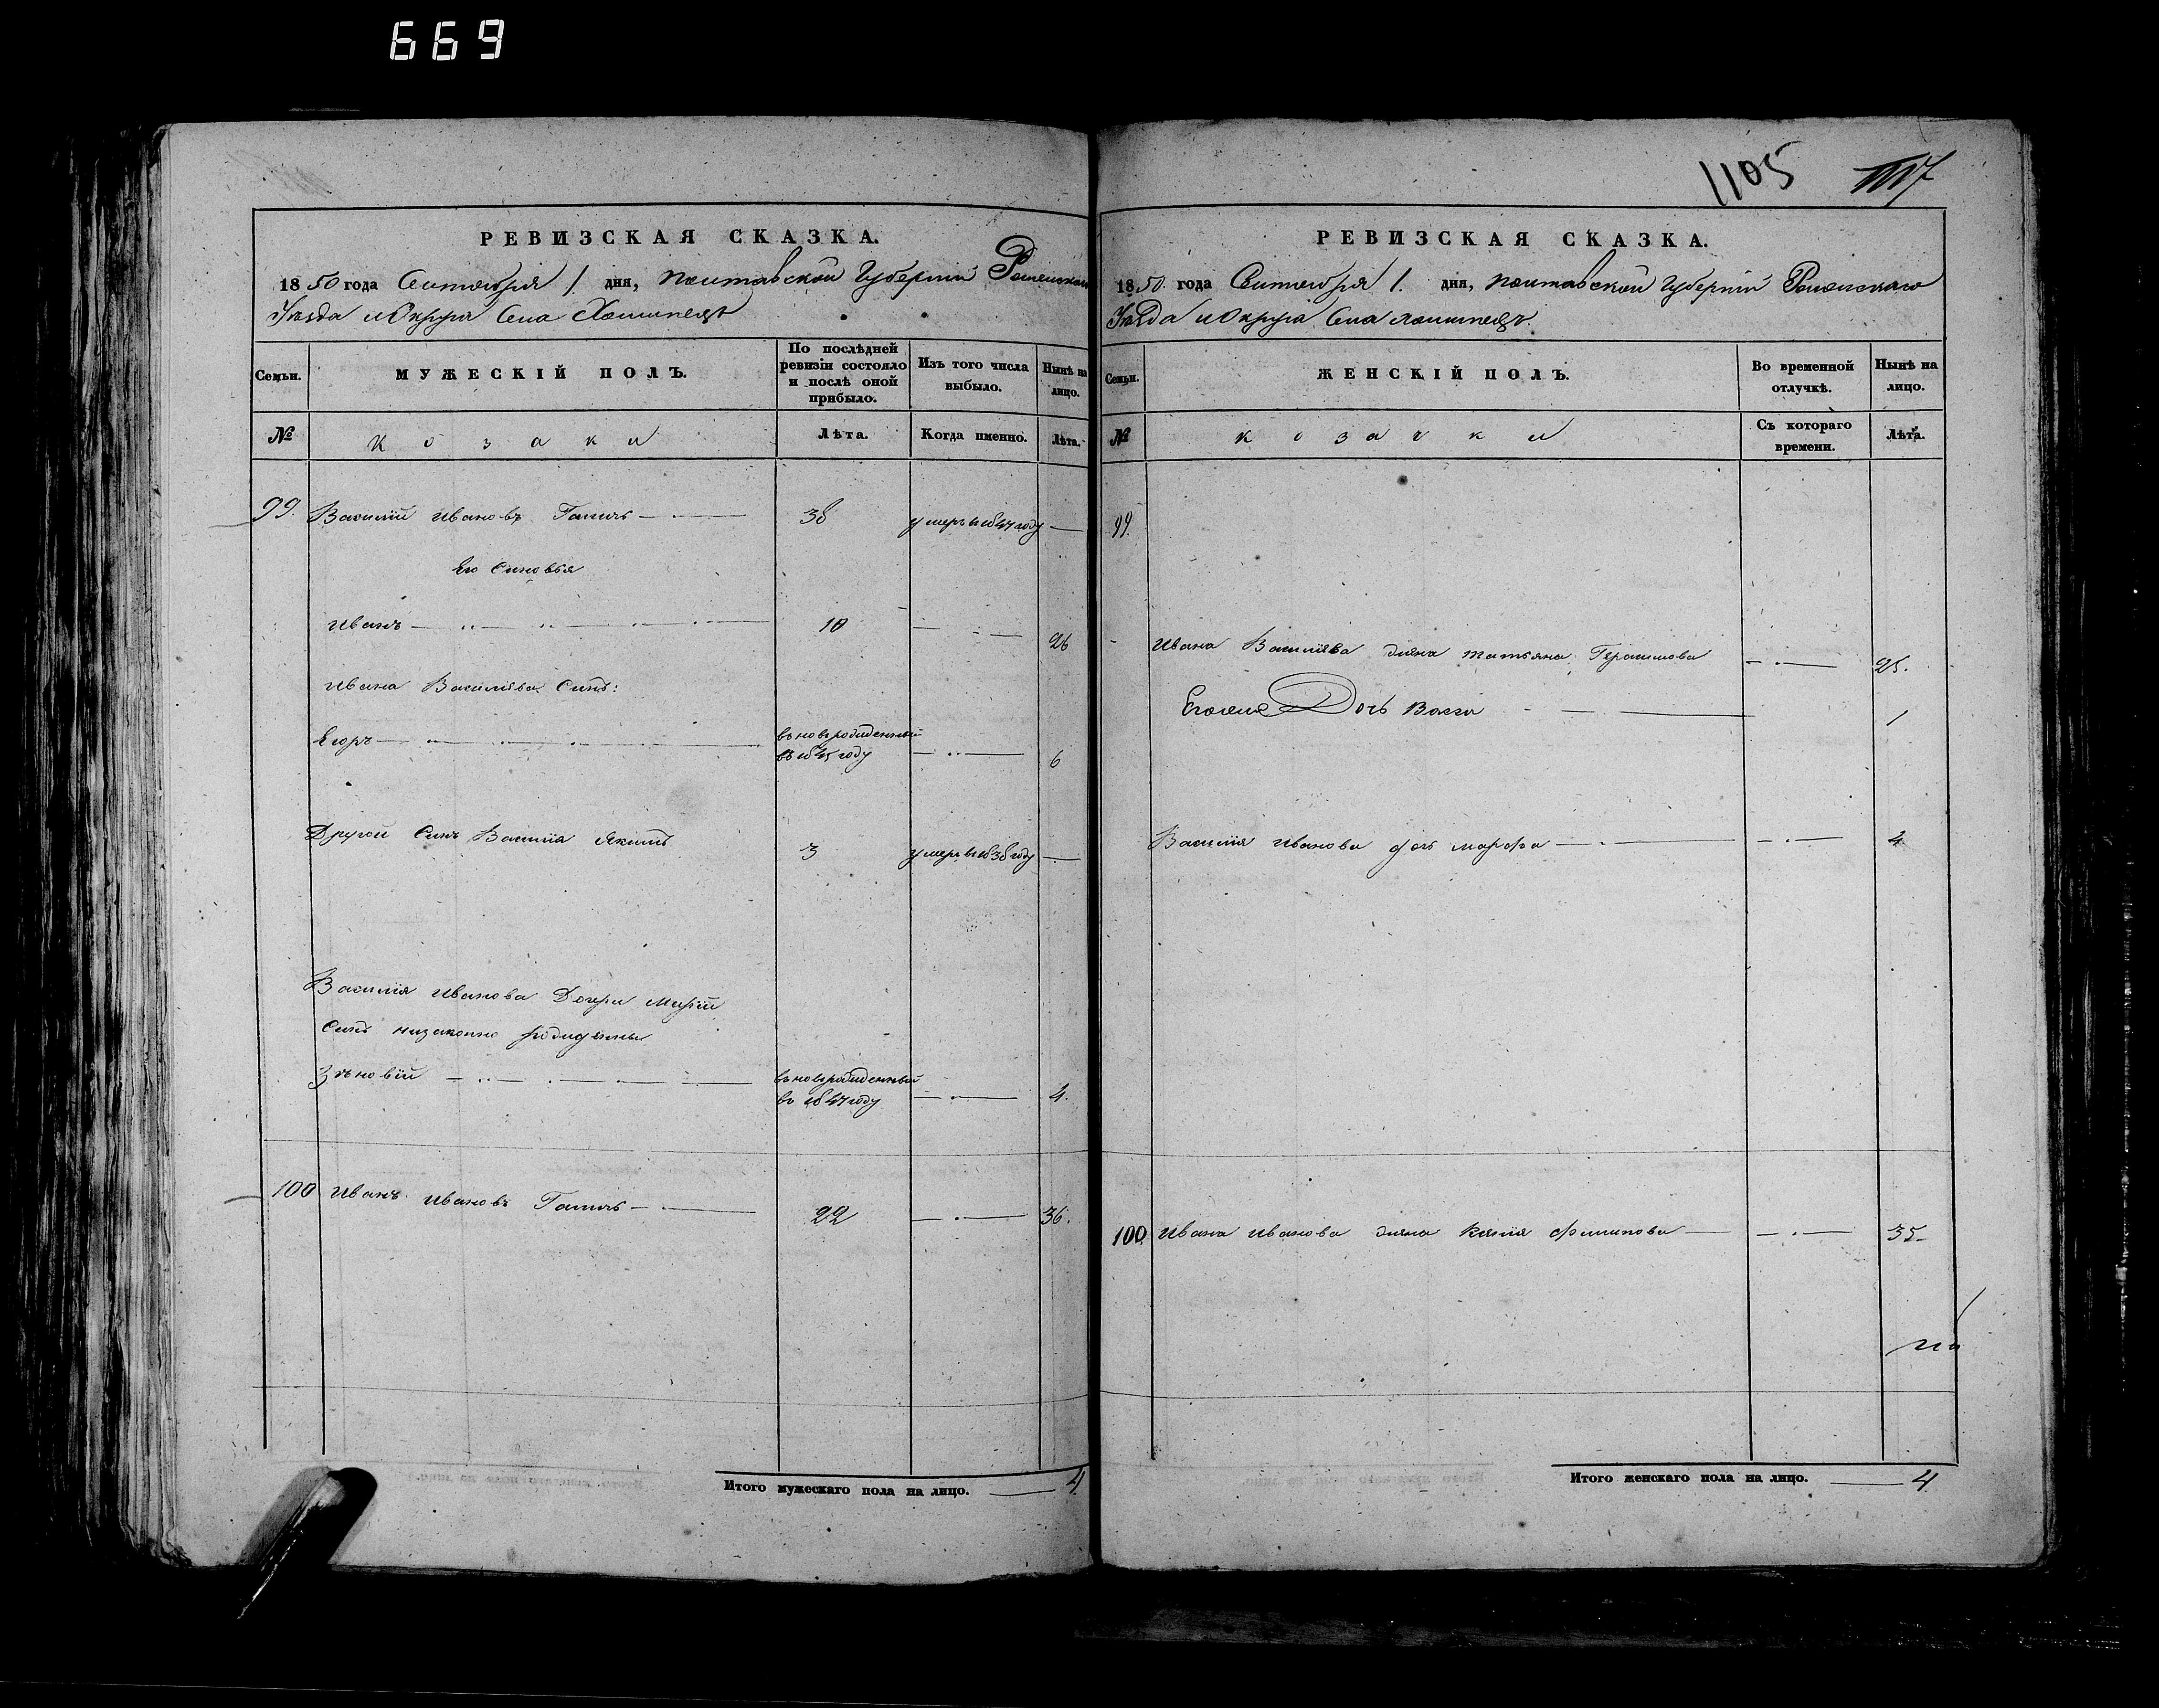 669
1105 1117
РЕВИЗСКАЯ СКАЗКА.
1850 года Сентября 1 дня, Полтавской Губернии Роменскаго
Уезда и Округа Села
МУЖЕСКІЙ ПОЛЪ.
Семьи.
По послѣдней ревизіи состояло и послѣ оной прибыло.
Изъ того числа выбыло.
Нынѣ на лицо.
№
козаки
Лѣта.
Когда именно.
Лѣта.
99. Василій Ивановъ 38 умеръ 1847 году —
Его Синовья
Иванъ 10 — 26
Ивана Василіева Синъ:
Егоръ въновьрожденный — 6
въ 1845 году
Другой Синъ Василія Якимъ 3 умеръ 1838 году —
Василія Иванова Дочери Маріи
Синъ низаконно рожденны
Зѣновій въновьрожденный — 4.
въ 1847 году
100 Иванъ Ивановъ 22 — 36.
Итого мужескаго пола на лицо. — 4
РЕВИЗСКАЯ СКАЗКА.
1850. года Сентября 1. дня, Полтавской Губерніи Роменскаго
Уезда и Округа Села
Семьи.
ЖЕНСКІЙ ПОЛЪ.
Во временной отлучкѣ.
Нынѣ на лицо.
№
козачки
Съ котораго времени.
Лѣта.
99.
Ивана Василіева жена Татьяна Герасимова — 25.
Егоже Дочь Васса — 1
Василія Иванова дочь Марфа — 4
100 Ивана Иванова жена Ксенія Филипова — 35
Итого женскаго пола на лицо. — 4